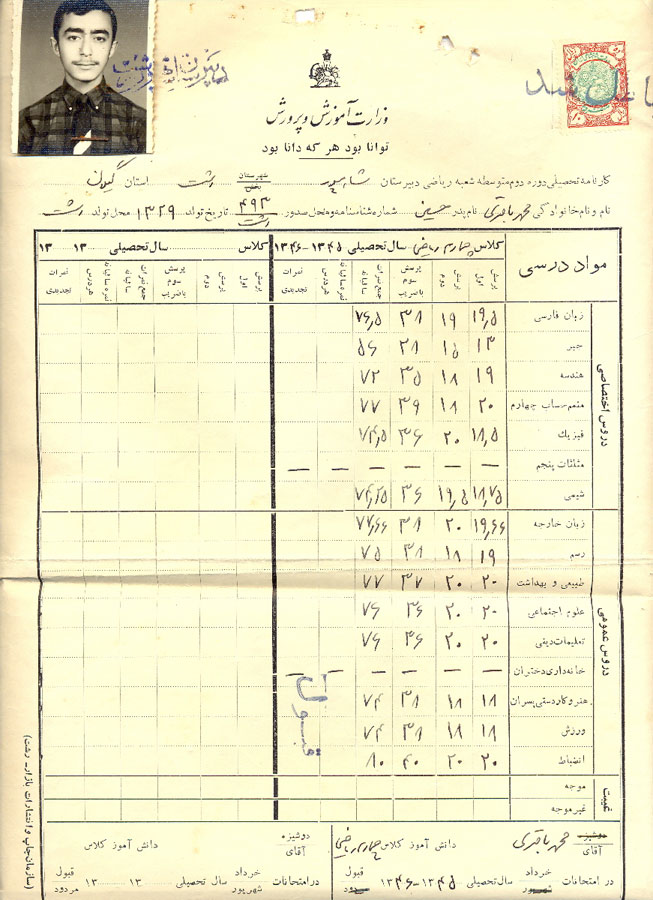 وزارت آموزش و پرورش
توانا بود هر که دانا بود
کارنامه تحصیلی دوره دوم متوسطه شعبه ریاضی دبیرستان شاهپور شهرستان بخش رشت استان گیلان
نام و نام خانوادگی محمد باقری نام پدر حسین شماره شناسنامه و محل صدور ۴۹۳ رشت تاریخ تولد ۱۳۲۹ محل تولد رشت
مواد درسی
کلاس چهارم ریاضی سال تحصیلی ۱۳۴۵-۱۳۴۶
کلاس سال تحصیلی ۱۳ ۱۳
پرسش اول پرسش دوم پرسش سوم باضریب جمع نمرات سالیانه نمره سالیانه هر درس نمرات تجدیدی
پرسش اول پرسش دوم پرسش سوم باضریب جمع نمرات سالیانه نمره سالیانه هر درس نمرات تجدیدی
دروس اختصاصی
زبان فارسی ۱۹,۵ ۱۹ ۳۸ ۷۶,۵
جبر ۱۳ ۱۵ ۲۸ ۵۶
هندسه ۱۹ ۱۸ ۳۵ ۷۲
متمم حساب چهارم ۲۰ ۱۸ ۳۹ ۷۷
فیزیک ۱۸,۵ ۲۰ ۳۶ ۷۴,۵
مثلثات پنجم — — — — — —
شیمی ۱۸,۷۵ ۱۹,۵ ۳۶ ۷۴,۲۵
دروس عمومی
زبان خارجه ۱۹,۶۶ ۲۰ ۳۸ ۷۷,۶۶
رسم ۱۹ ۱۸ ۳۸ ۷۵
طبیعی و بهداشت ۲۰ ۲۰ ۳۷ ۷۷
علوم اجتماعی ۲۰ ۲۰ ۳۶ ۷۶
تعلیمات دینی ۲۰ ۲۰ ۳۶ ۷۶
خانه‌داری دختران — — — — — —
هنر و کاردستی پسران ۱۸ ۱۸ ۳۸ ۷۴
ورزش ۱۸ ۱۸ ۳۸ ۷۴
انضباط ۲۰ ۲۰ ۴۰ ۸۰
قبول
غیبت
موجه
غیرموجه
دوشیزه آقای محمد باقری دانش آموز کلاس چهارم ریاضی
در امتحانات خرداد شهریور سال تحصیلی ۱۳۴۵-۱۳۴۶ قبول مردود
دوشیزه آقای دانش آموز کلاس
در امتحانات خرداد شهریور سال تحصیلی ۱۳ ۱۳ قبول مردود
(سازمان چاپ و انتشارات بازار - رشت)